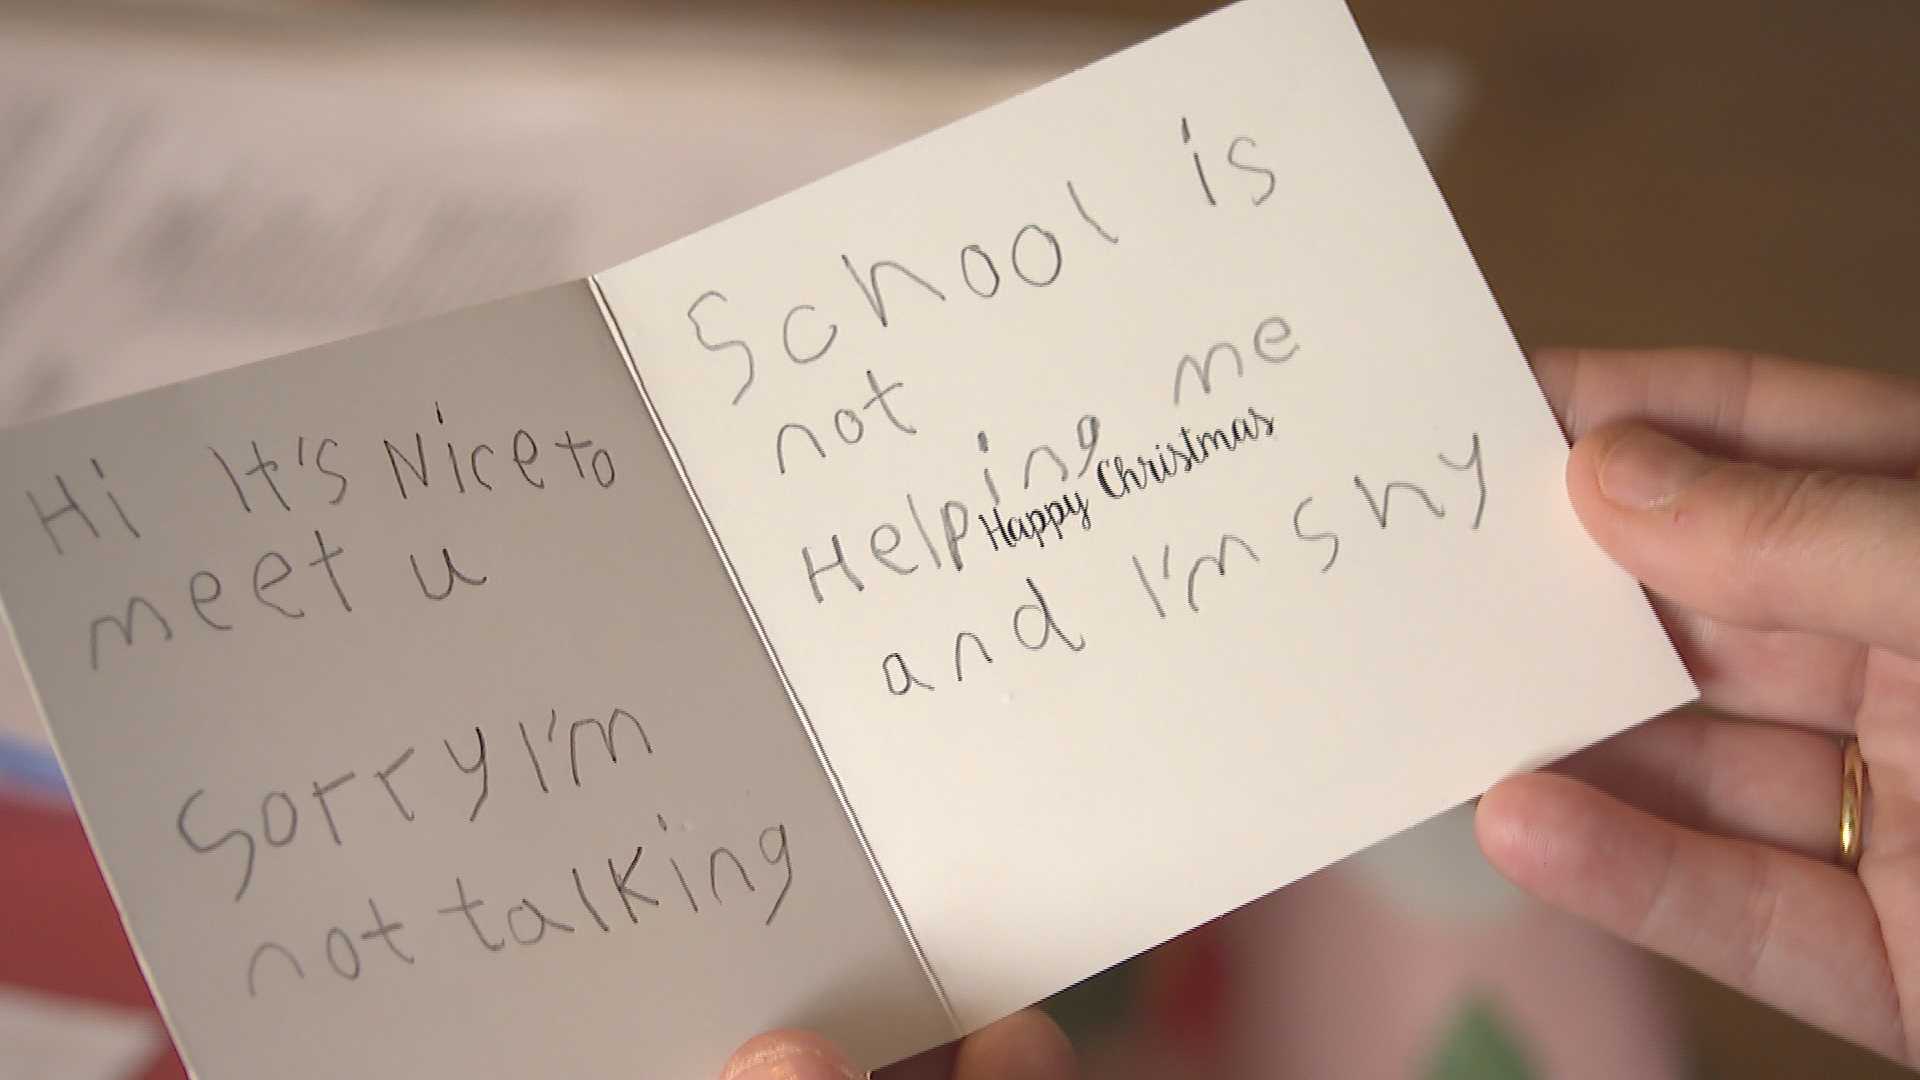 Hi It's Nice to
meet u
Sorry I'm
not talking
School is
not me
Helping
Happy Christmas
and I'm shy